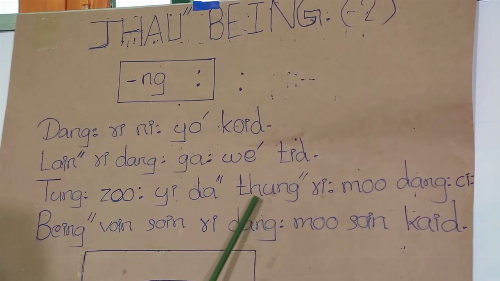 THAU" BEING: (-2)
-ng : : :--
Dang: ri ni: yo' koid-
Lain" ri dang: ga: we' tid-
Tung: zoo: yi da" thung" ri: moo dang: ci:
Being" voin soin ri dang: moo soin kaid-